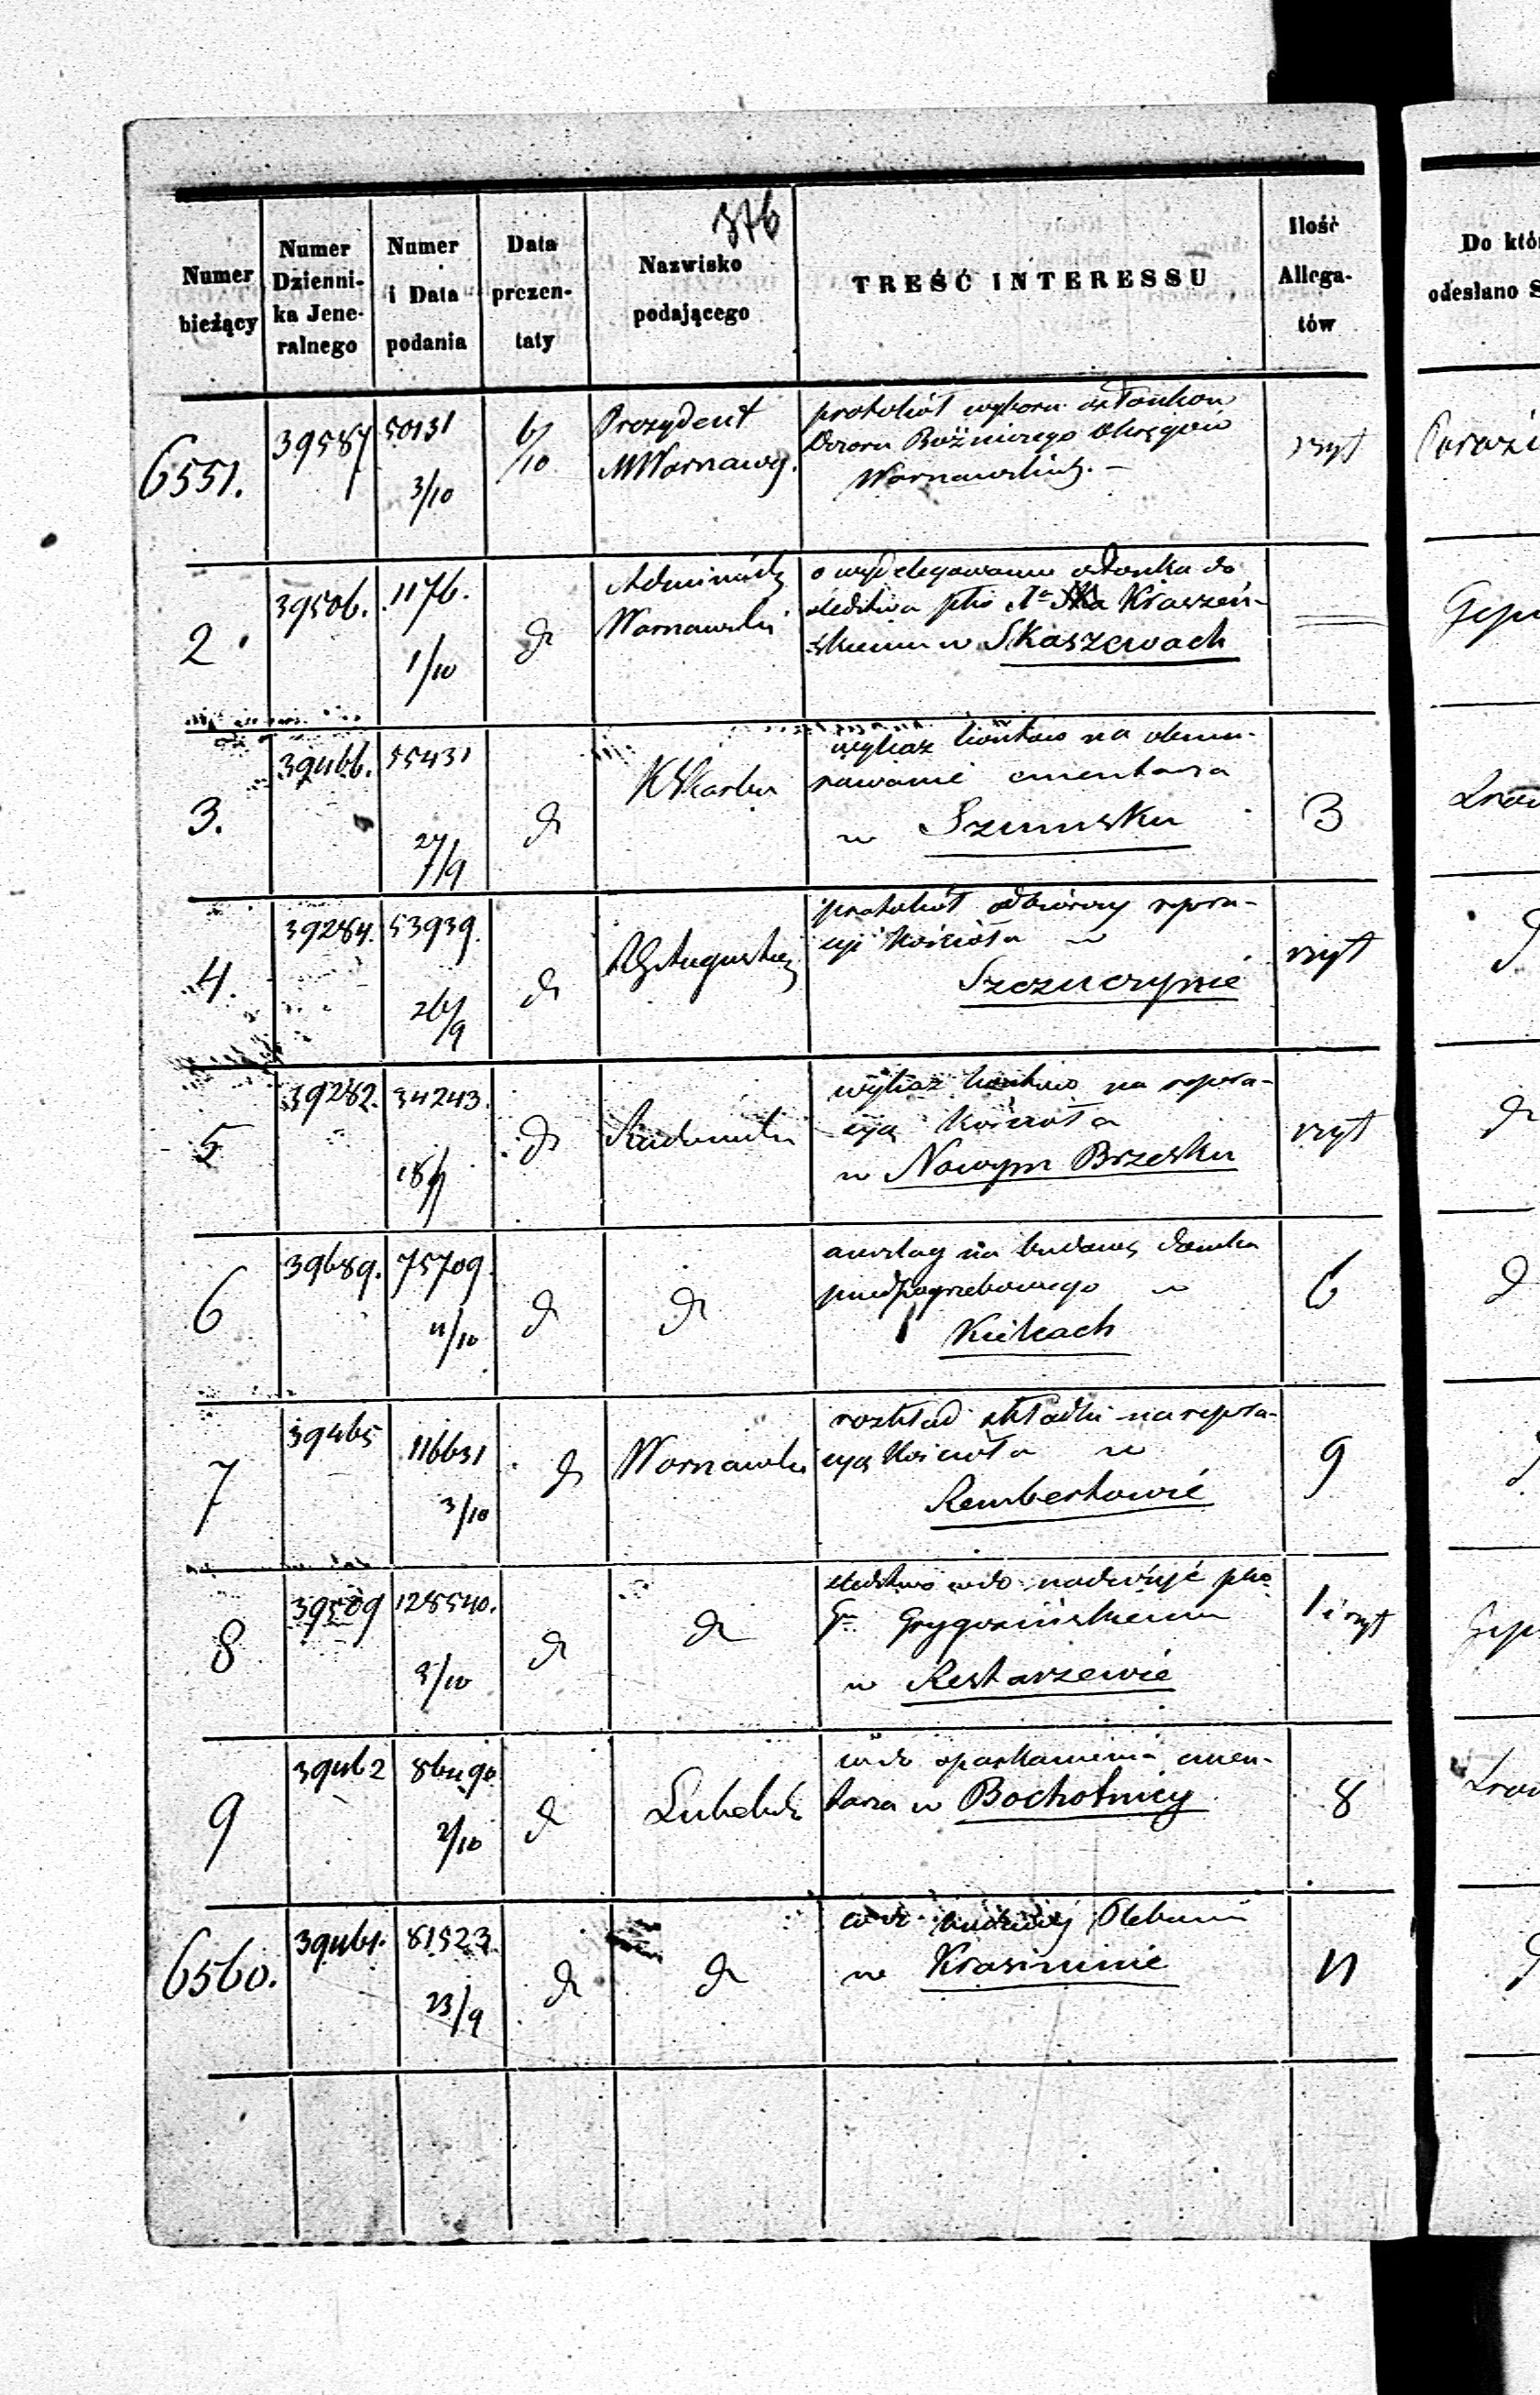 376
Numer
bieżący
Numer
Dzienni-
ka Jene-
ralnego
Numer
i Data
podania
Data
prezen-
taty
Nazwisko
podającego
TREŚĆ INTERESSU
Ilość
Allega-
tów
Do któ
odesłano S
6551.
39587
50131
3/10
6/10
Prezydent
MWarnawy.
protokół wyboru członków
Dozoru Bóżniczego Okręgów
Warnawskich. –
zszyt
2.
39506.
1176.
1/10
dr
Warnawski
o wydelegowanie członka do
śledztwa
Kraszeń-
skiemu w Skaszewach
3.
39466.
55431
27/9
dr
KSkarbu
wykaz kosztów na obmu-
rowanie cmentarza
w Szumsku
3
4.
39284.
53939.
26/9
dr
protokół odbiorczy repra-
cyi Kościoła w
Szczuczynie
zszyt
5
39282.
34243.
dr
Radomski
wykaz kosztów na repera-
cyą Kościoła
w Nowym Brzesku
zszyt
6
39689.
75709.
4/10
dr
dr
anszlag na budowę domku
przedpogrzebowego w
Kielcach
6
7
39465
116631
3/10
dr
Warnawski
rozkład składki na repra-
cyą Kościoła w
Rembertowie
9
8
39509
128540.
3/10
dr
dr
śledztwo wdo nadużyć
Grygosińskiemu
w Restarzewie
1 i zszyt
9
39462
86490
2/10
dr
Lubelski
wdo oparkanienia cmen-
tarza w Bochotnicy
8
6560.
39461.
81523.
23/9
dr
dr
wdo budowy Plebanii
w Krasieninie